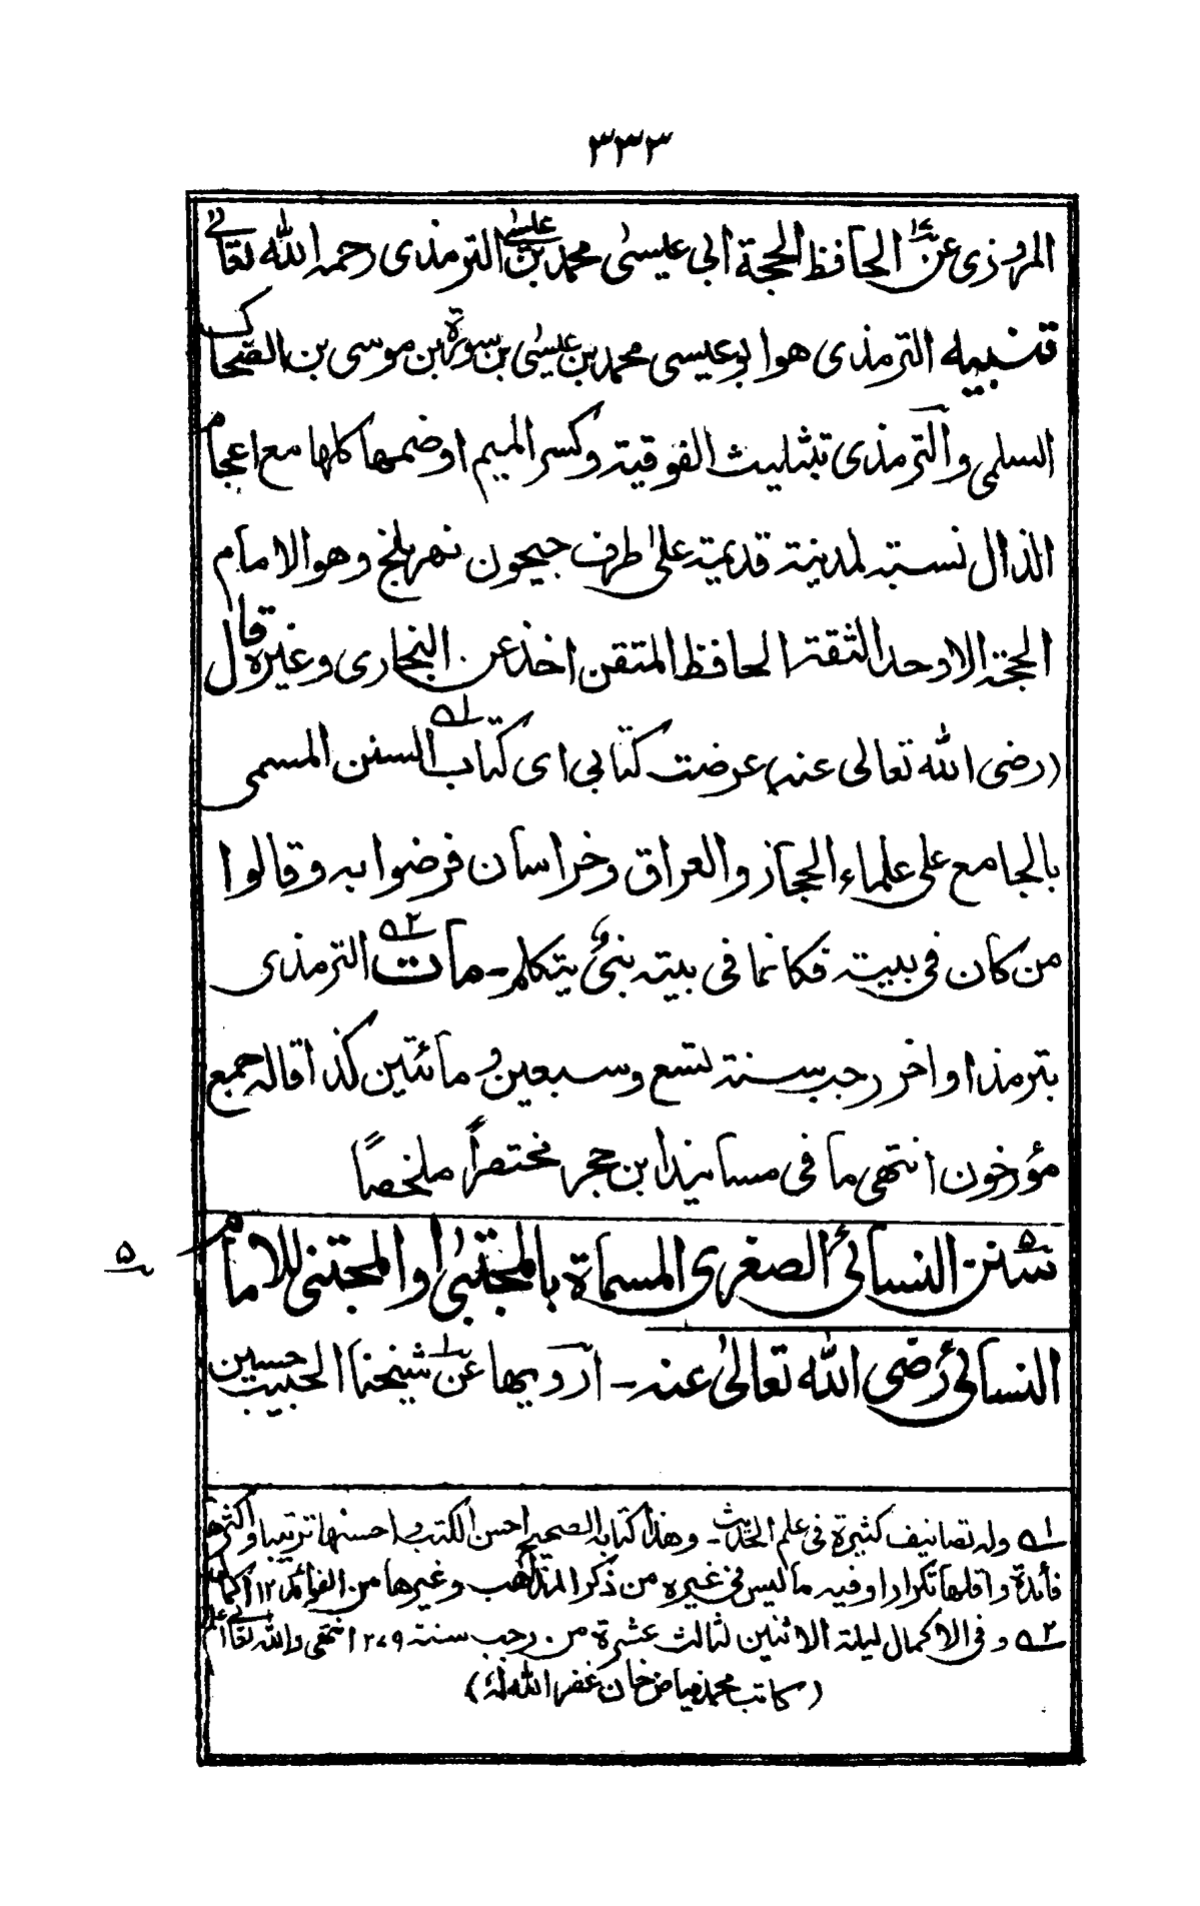 ٣٣٣
المروزی عن الحافظ الحجة ابی عیسیٰ محمد بن عیسیٰ الترمذی رحمہ اللّٰہ تعالیٰ
تنبیہ الترمذی ھو ابو عیسی محمد بن عیسیٰ بن سورة بن موسی بن الضحاک
السلمی والترمذی بتثلیث الفوقیة وکسر المیم اوضمھا کلھا مع اعجام
الذال نسبة لمدینة قدیمة علیٰ طرف جیحون نھر بلخ وھو الامام
الحجة الاوحد الثقة الحافظ المتقن اخذ عن البخاری وغیرہ قال
(رضی اللّٰہ تعالی عنہ) عرضت کتابی ای کتاب السنن المسمی ١ه
بالجامع علی علماء الحجاز والعراق وخراسان فرضوا بہ وقالوا
من کان فی بیتہ فکانما فی بیتہ نبیٌ یتکلم۔ مات ٢ه الترمذی
بترمذ اواخر رجب سنة تسع وسبعین ومائتین کذا قالہ جمیع
مؤرخون انتھی ما فی مسانید ابن حجر مختصراً ملخصاً
سنن النسائی الصغری المسماة بالمجتبیٰ او المجتنی للامام
۵
النسائی رضی اللّٰہ تعالیٰ عنہ۔ ارویھا عن شیخنا الحبیب حسین
١ه ولہ تصانیف کثیرة فی علم الحدیث۔ وھذا کتابہ الصحیح احسن الکتب واحسنھا ترتیبا واکثرھا
فائدة واقلھا تکرارا وفیہ ما لیس فی غیرہ من ذکر المذاھب وغیرھا من الفوائد ١٢ اکمال
٢ه وفی الاکمال لیلة الاثنین لثالث عشرة من رجب سنة ٢٧٩ انتھی واللّٰہ تعالیٰ اعلم
(کاتب محمد فیاض خان غفر اللّٰہ لہٗ)